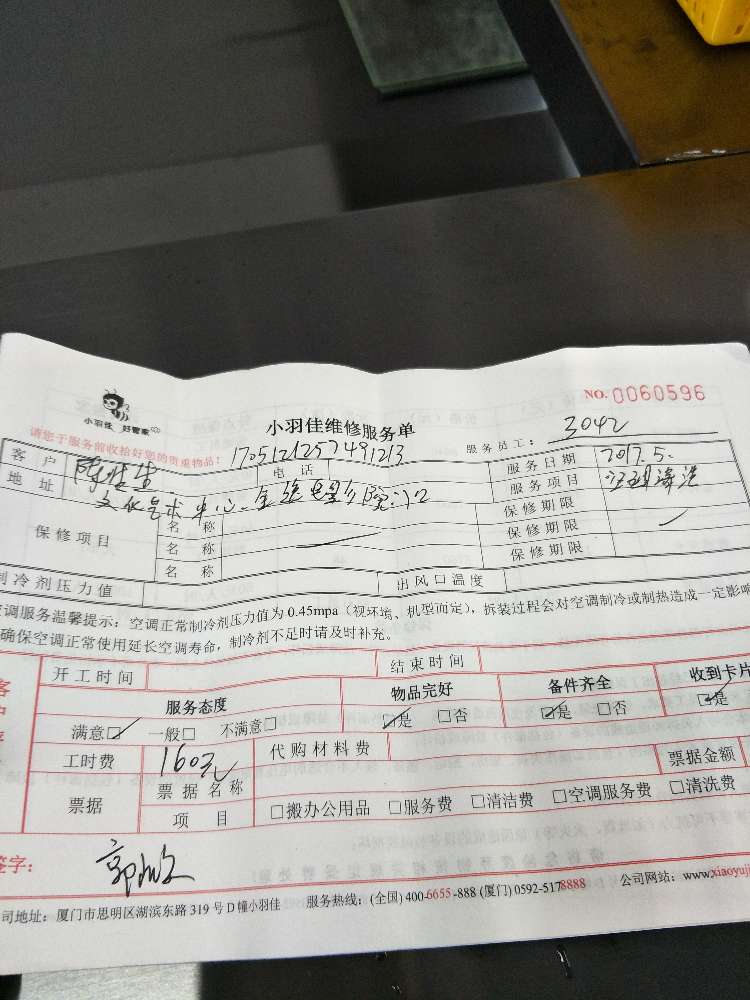 NO. 0060596
小羽佳 好管家
小羽佳维修服务单
请您于服务前收拾好您的贵重物品!
服务员工: 3042
客户 陈 电话 服务日期 2017.5.
地址 文化艺术中心 服务项目 空调清洗
保修项目
名称 保修期限
名称 保修期限
名称 保修期限
制冷剂压力值 出风口温度
空调服务温馨提示:空调正常制冷剂压力值为 0.45mpa(视环境、机型而定),拆装过程会对空调制冷或制热造成一定影响
确保空调正常使用延长空调寿命,制冷剂不足时请及时补充。
开工时间 结束时间
服务态度 物品完好 备件齐全 收到卡片
满意☑ 一般□ 不满意□ ☑是 □否 ☑是 □否 ☑是
工时费 160元 代购材料费
票据 票据名称 □搬办公用品 □服务费 □清洁费 □空调服务费 □清洗费 票据金额
项目
签字:
司地址:厦门市思明区湖滨东路 319 号 D 幢小羽佳 服务热线:(全国) 400-6655-888 (厦门) 0592-5178888 公司网站:www.xiaoyuji